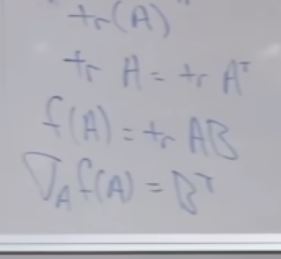 "tr(A)"
tr A = tr Aᵀ
f(A) = tr AB
∇_A f(A) = Bᵀ